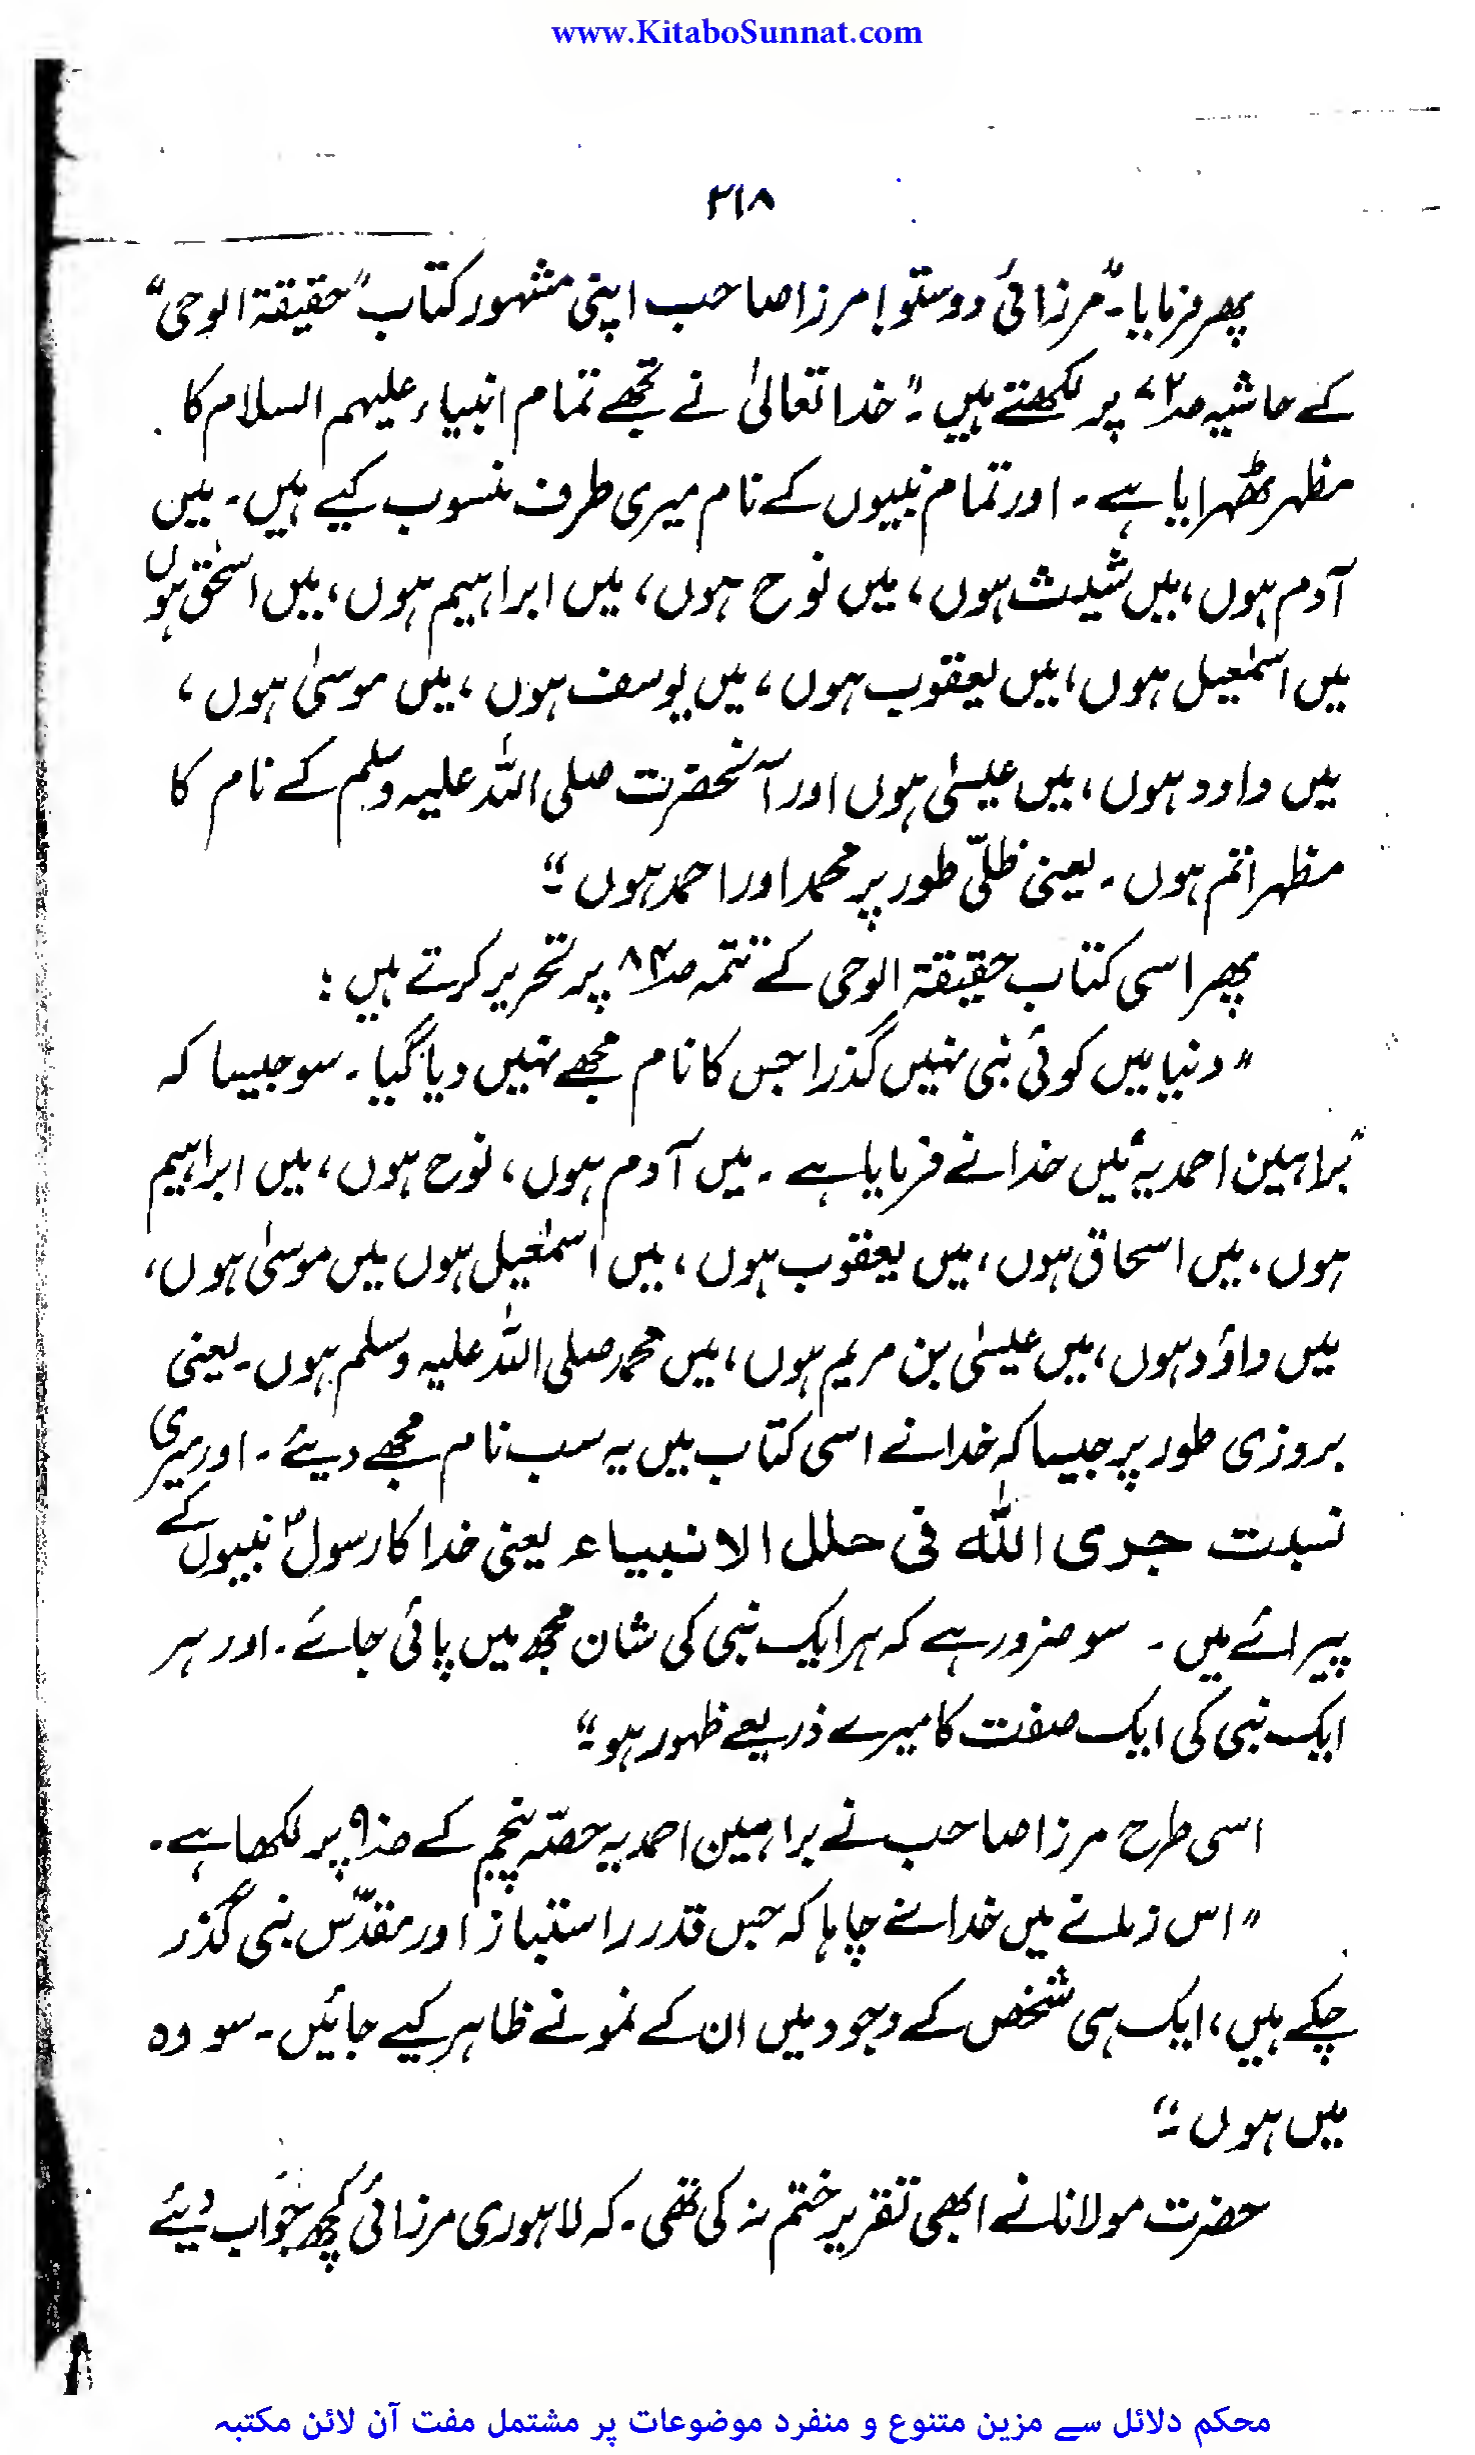 www.KitaboSunnat.com
۲۱۸
پھر فرمایا۔ "مرزائی دوستو! مرزا صاحب اپنی مشہور کتاب "حقیقۃ الوحی"
کے حاشیہ صـ۷۲ پر لکھتے ہیں۔ "خدا تعالیٰ نے مجھے تمام انبیاء علیہم السلام کا
مظہر ٹھہرایا ہے۔ اور تمام نبیوں کے نام میری طرف منسوب کیے ہیں۔ میں
آدم ہوں، میں شیث ہوں، میں نوح ہوں، میں ابراہیم ہوں، میں اسحٰق ہوں
میں اسمٰعیل ہوں، میں یعقوب ہوں، میں یوسف ہوں، میں موسیٰ ہوں،
میں داود ہوں، میں عیسٰی ہوں اور آنحضرت صلی اللہ علیہ وسلم کے نام کا
مظہر اتم ہوں۔ یعنی ظلّی طور پر محمد اور احمد ہوں۔"
پھر اسی کتاب حقیقۃ الوحی کے تتمہ صـ۸۴ پر تحریر کرتے ہیں:
"دنیا میں کوئی نبی نہیں گذرا جس کا نام مجھے نہیں دیا گیا۔ سو جیسا کہ
"براہین احمدیہ" میں خدا نے فرمایا ہے۔ میں آدم ہوں، نوح ہوں، میں ابراہیم
ہوں، میں اسحاق ہوں، میں یعقوب ہوں، میں اسمٰعیل ہوں میں موسیٰ ہوں،
میں داؤد ہوں، میں عیسٰی بن مریم ہوں، میں محمد صلی اللہ علیہ وسلم ہوں۔ یعنی
بروزی طور پر جیسا کہ خدا نے اسی کتاب میں یہ سب نام مجھے دیئے۔ اور میری
نسبت جری اللّٰہ فی حلل الانبیاء یعنی خدا کا رسول نبیوں کے
پیرائے میں۔ سو ضرور ہے کہ ہر ایک نبی کی شان مجھ میں پائی جائے۔ اور ہر
ایک نبی کی ایک صفت کا میرے ذریعے ظہور ہو۔"
اسی طرح مرزا صاحب نے براہین احمدیہ حصّہ پنجم کے صـ۹۰ پر لکھا ہے۔
"اس زمانے میں خدا نے چاہا کہ جس قدر راستباز اور مقدّس نبی گذر
چکے ہیں، ایک ہی شخص کے وجود میں ان کے نمونے ظاہر کیے جائیں۔ سو وہ
میں ہوں۔"
حضرت مولانا نے ابھی تقریر ختم نہ کی تھی۔ کہ لاہوری مرزائی کچھ جواب دیئے
محکم دلائل سے مزین متنوع و منفرد موضوعات پر مشتمل مفت آن لائن مکتبہ